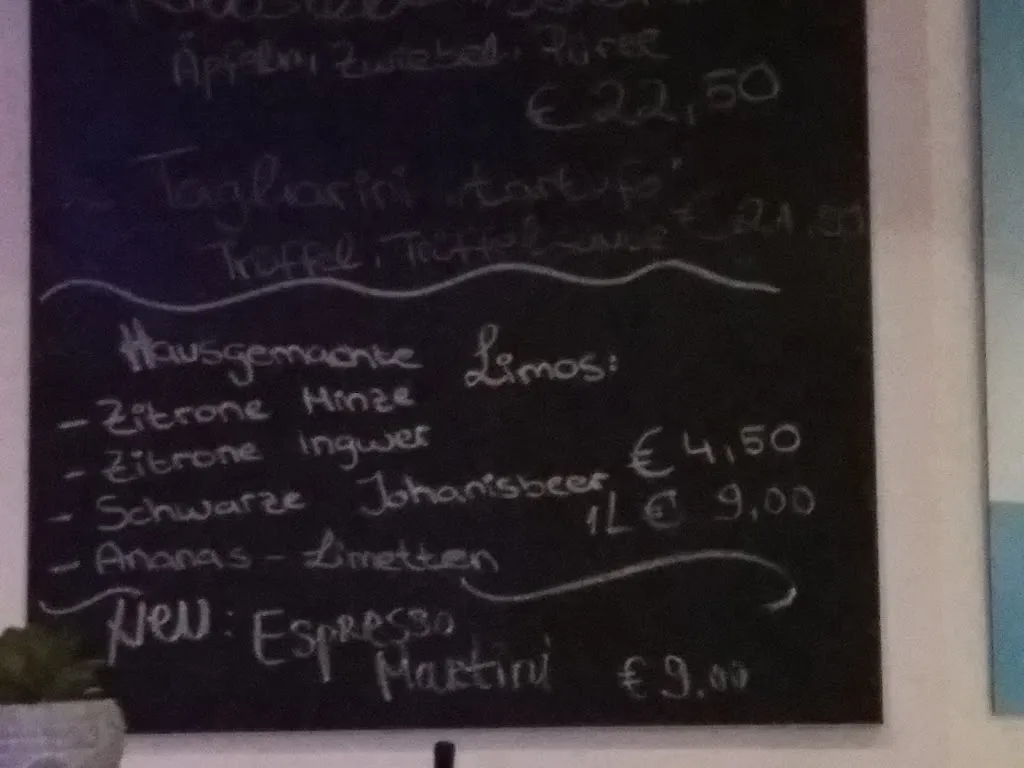 Äpfeln, Zwiebel, Püree
€ 22,50
Tagliarini "tartufo"
€ 21,50
Trüffel, Trüffel
Hausgemachte Limos:
- Zitrone Minze
- Zitrone Ingwer
€ 4,50
- Schwarze Johanisbeer
1L € 9,00
- Ananas - Limetten
Neu: Espresso
Martini € 9,00